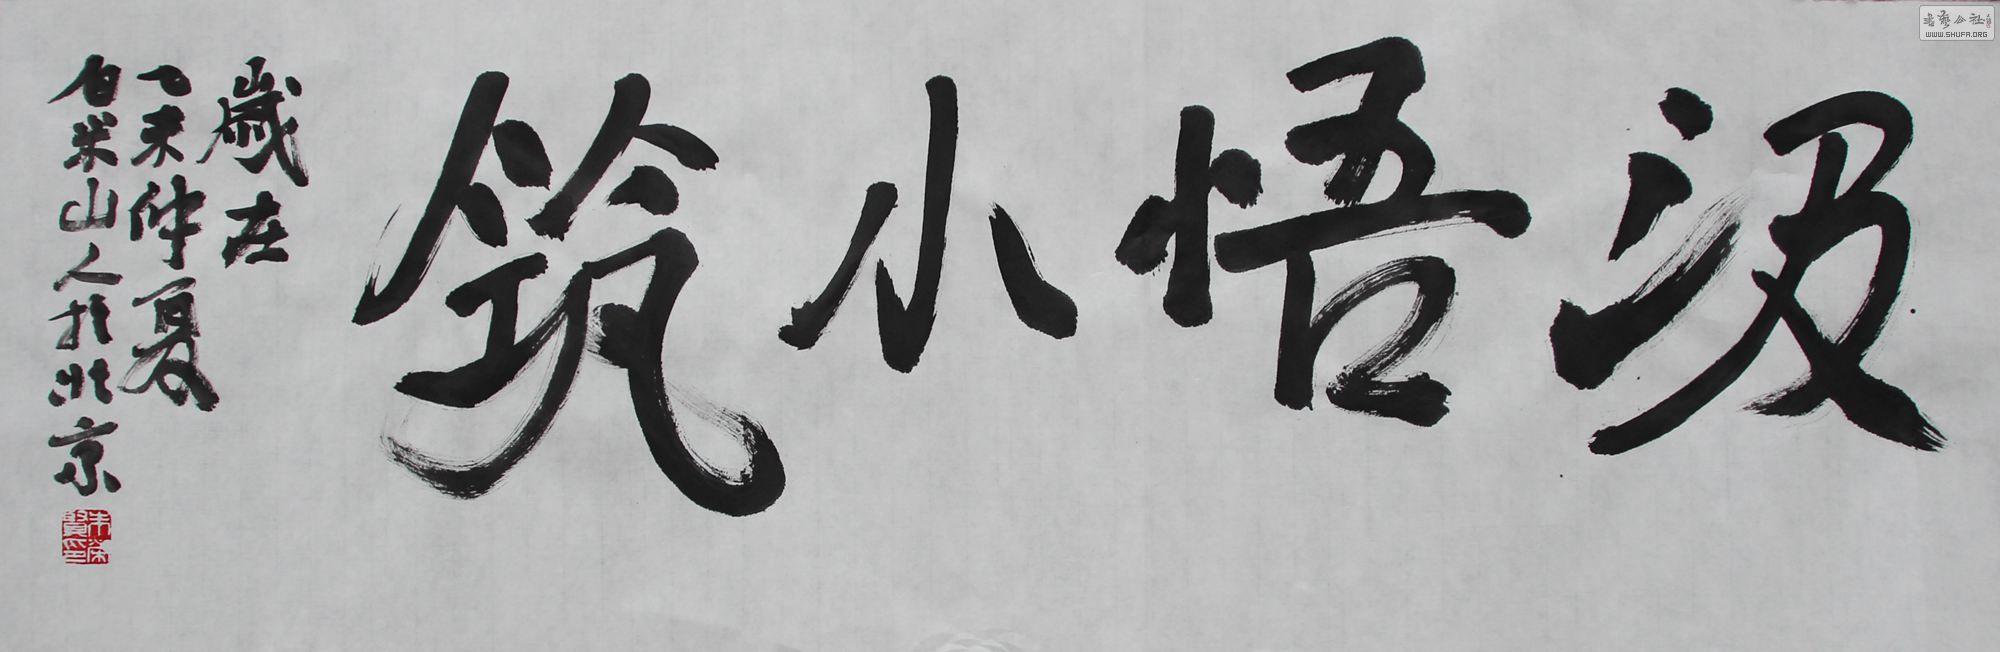 汲悟小筑
歲在
乙未仲夏
白米山人於北京
书艺公社
WWW.SHUFA.ORG